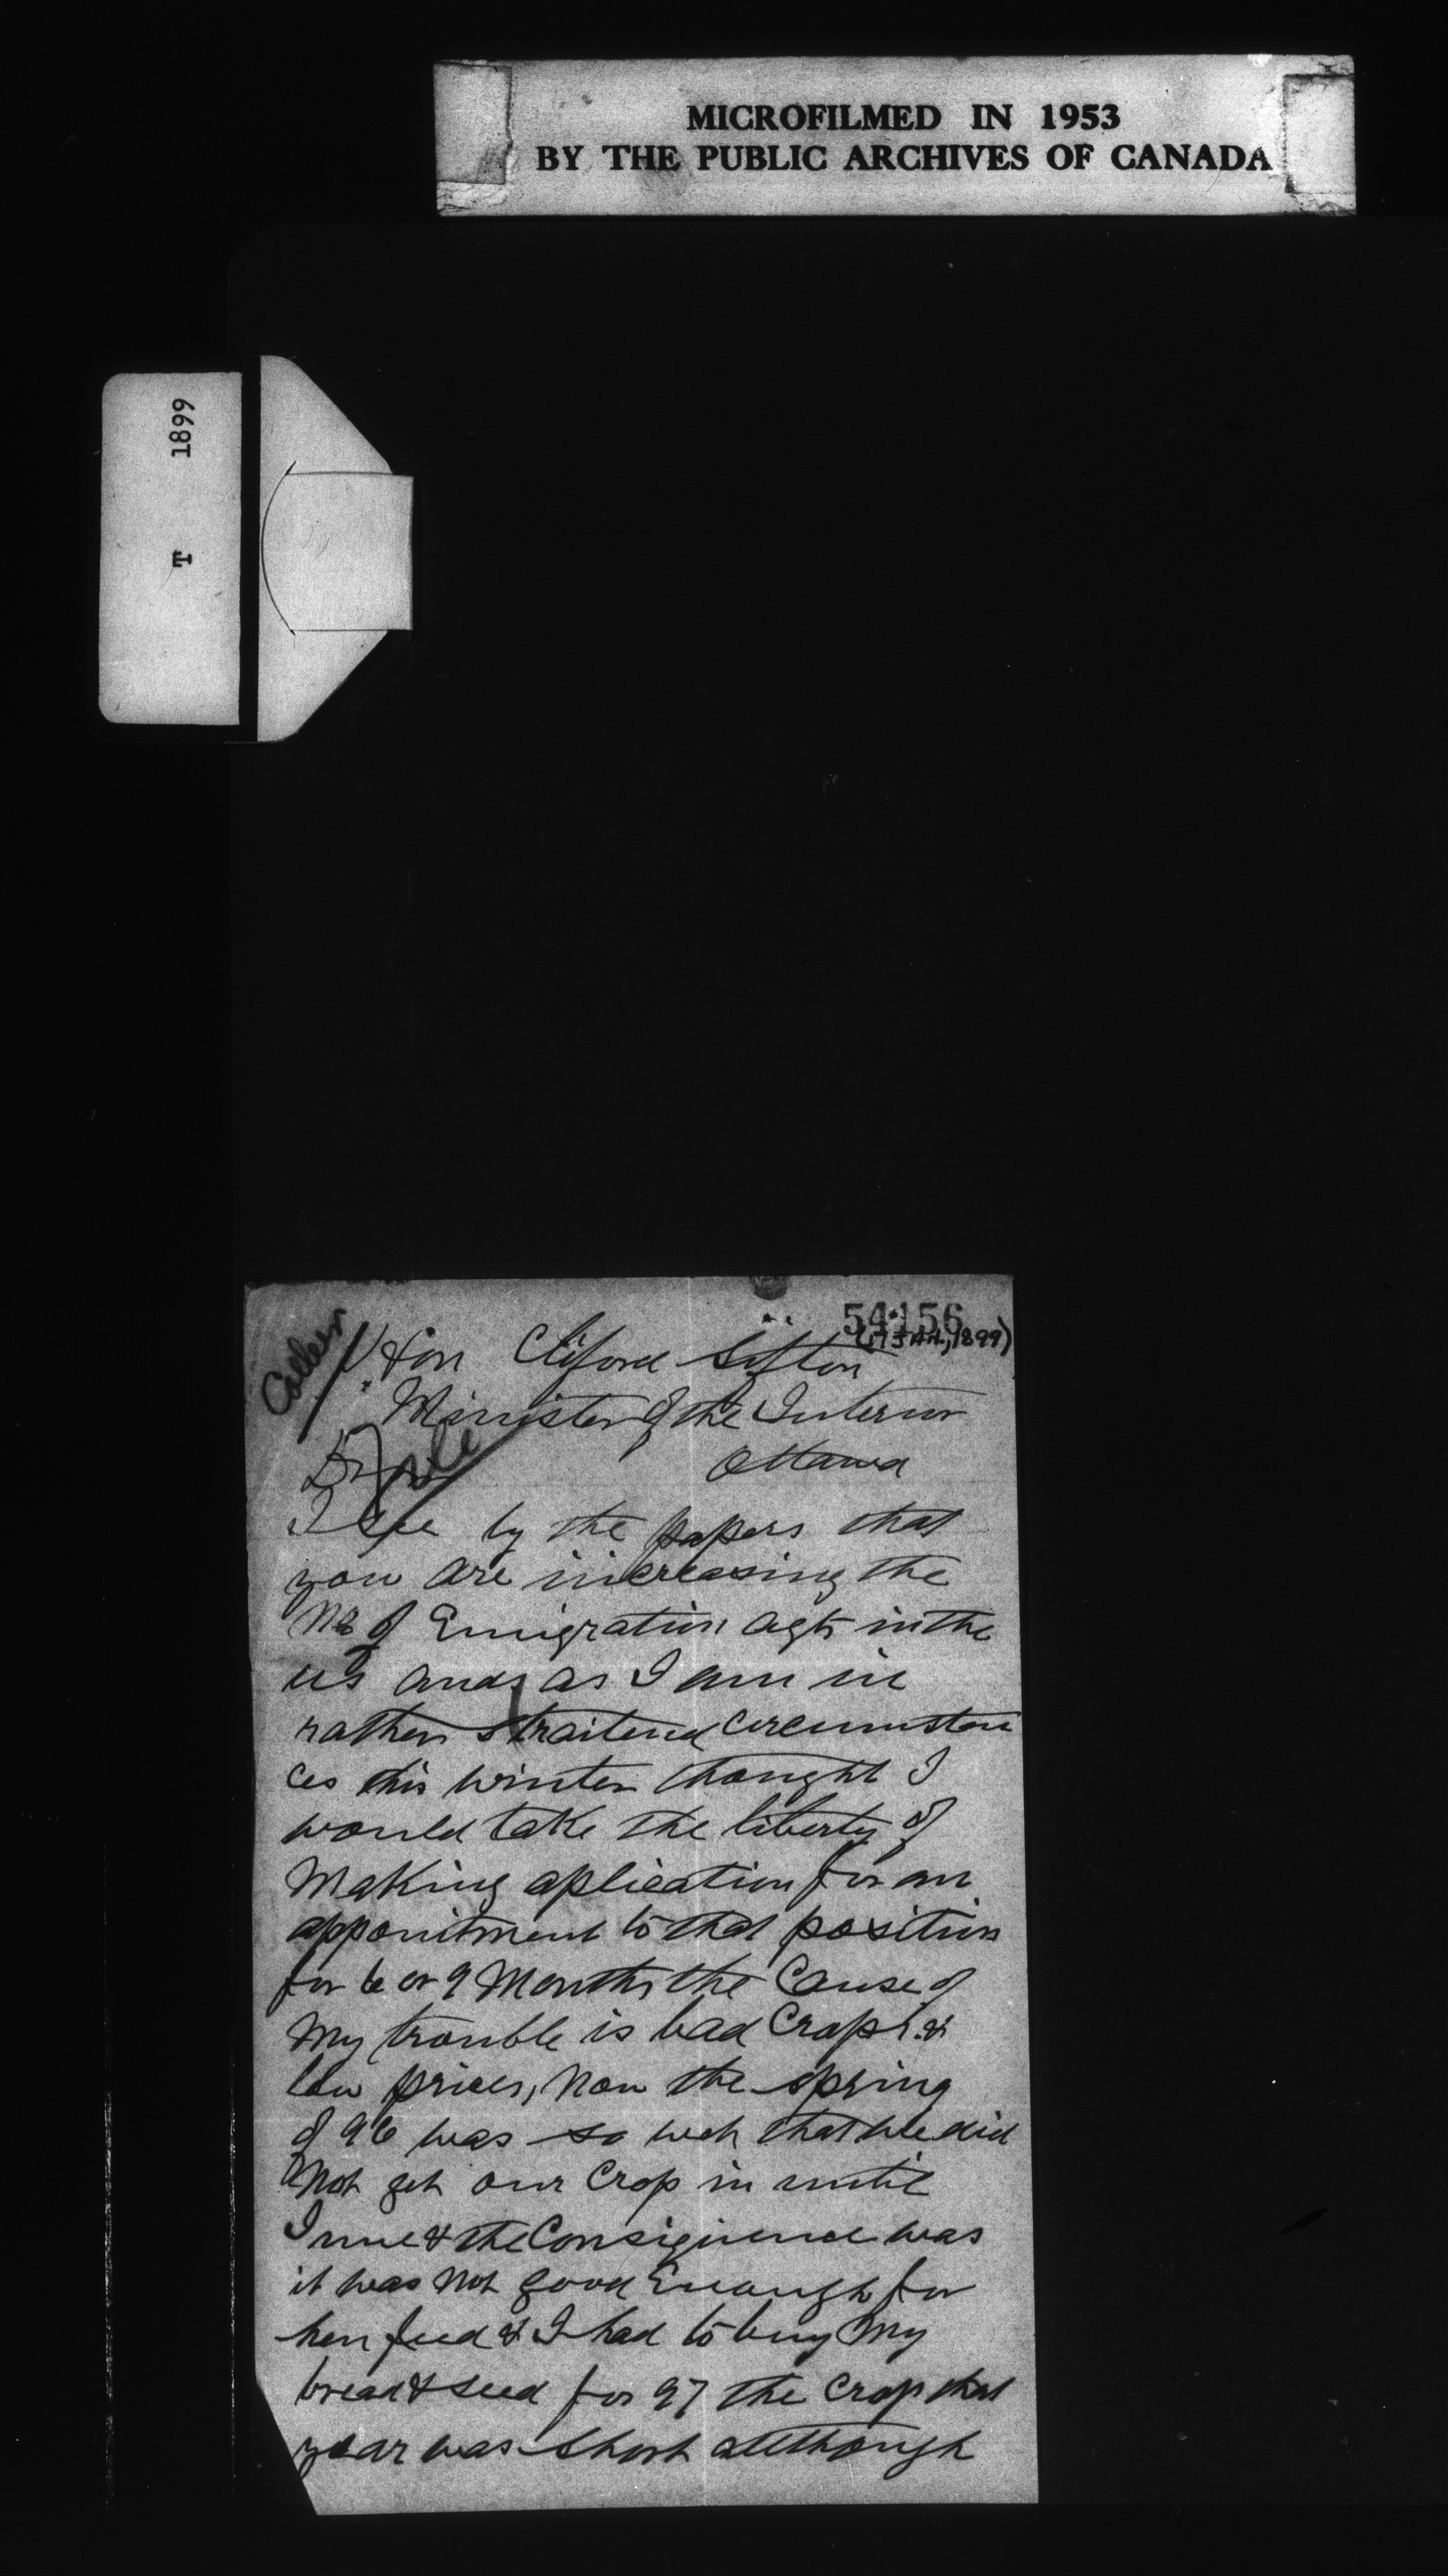 MICROFILMED IN 1953
BY THE PUBLIC ARCHIVES OF CANADA
T 1899
54156
(17 JAN, 1899)
Hon Cliford Sifton
Minister of the Interior
Ottawa
file
I see by the papers that
you are increasing the
No of Emigration agts in the
US and as I am in
rather straitend circumstan
ces this winter thought I
would take the liberty of
Making aplication for an
appointment to that position
for 6 or 9 Months the Cause of
My trouble is bad Crops &
low prices, Now the spring
of 96 was so wet that we did
Not get our Crop in until
June & the Consiquence was
it was Not good Enough for
hen feed & I had to buy My
bread & seed for 97 the Crop that
year was short allthough